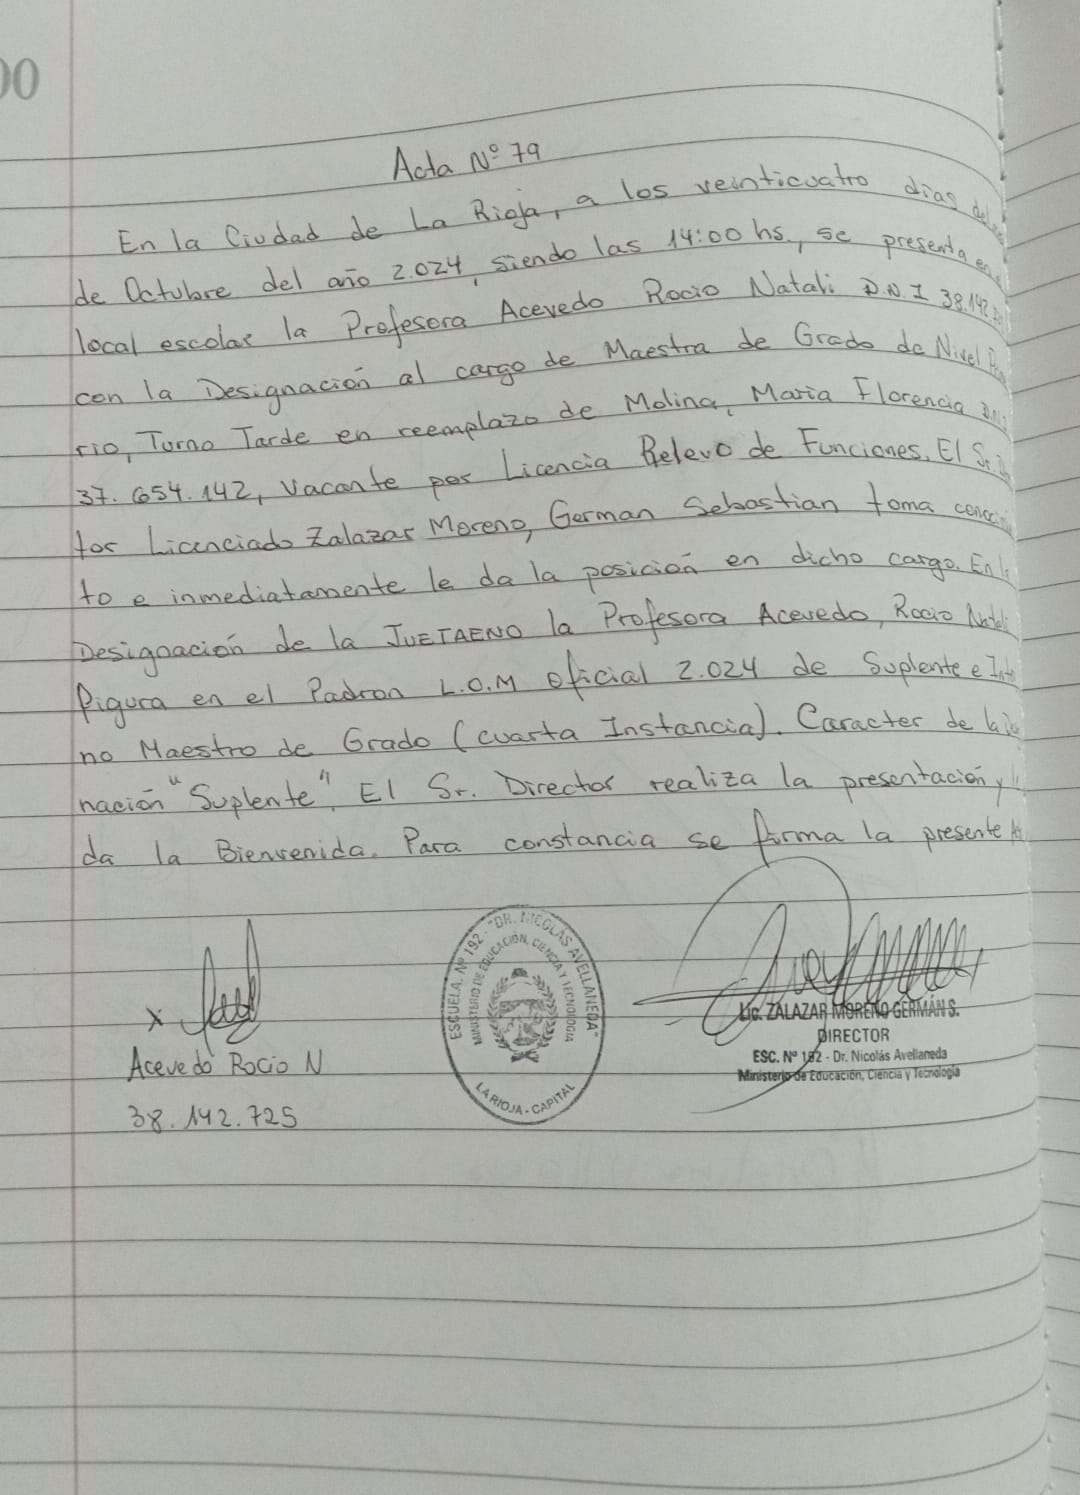 00
Acta Nº 79
En la Ciudad de La Rioja, a los veinticuatro dias del
de Octubre del año 2.024, siendo las 14:00 hs., se presenta en
local escolar la Profesora Acevedo Rocio Natali D.N.I 38.142.
con la Designación al cargo de Maestra de Grado de Nivel
rio, Turno Tarde en reemplazo de Molina, Maria Florencia D.N.I
37.654.142, Vacante por Licencia Relevo de Funciones. El Sr.
tor Licenciado Zalazar Moreno, German Sebastian toma conocimi
to e inmediatamente le da la posición en dicho cargo. En la
Designación de la JUETAENO la Profesora Acevedo, Rocio Natali
figura en el Padron L.O.M oficial 2.024 de Suplente e Inte
no Maestro de Grado (cuarta Instancia). Caracter de la
nación "Suplente". El Sr. Director realiza la presentación y
da la Bienvenida. Para constancia se firma la presente
x
Acevedo Rocio N
38.142.725
ESCUELA Nº 192 - "DR. NICOLÁS AVELLANEDA"
MINISTERIO DE EDUCACIÓN, CIENCIA Y TECNOLOGIA
LA RIOJA - CAPITAL
Lic. ZALAZAR MORENO GERMÁN S.
DIRECTOR
ESC. Nº 192 - Dr. Nicolás Avellaneda
Ministerio de Educación, Ciencia y Tecnología